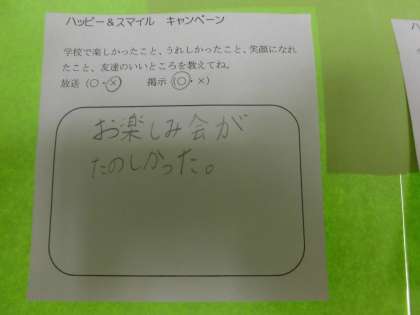 ハッピー＆スマイル　キャンペーン
学校で楽しかったこと、うれしかったこと、笑顔になれ
たこと、友達のいいところを教えてね。
放送（○・×）　掲示（○・×）
お楽しみ会が
たのしかった。